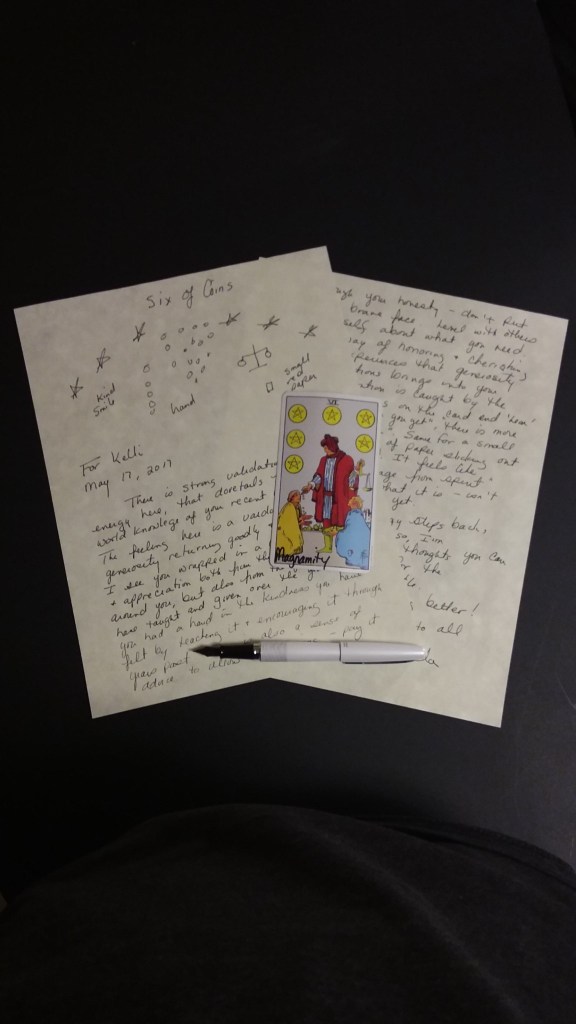 Six of Coins
kind
smile
hand
small
red
paper
For Kelli
May 17, 2017
There is strong validation
energy here, that dovetails
world knowledge of your recent
The feeling here is a
generosity returning goodly
I see you wrapped in a
+ appreciation both from th
around you, but also from th
have taught and given over the
you had a hand in the kindness you have
felt by teaching it + encouraging it through
years past also a sense of
advice to allow pay it
VI
Magnamity
your honesty - don't put
brave face level with others
about what you need.
ay of honoring + cherishing
that generosity
brings unto you
is caught by the
s on the card and "hear"
you get", there is more
Same for a small
of paper sticking out
It feels like
age from spirit
hat it is - won't
yet.
steps back,
so, I'm
thoughts you can
or the
better!
to all